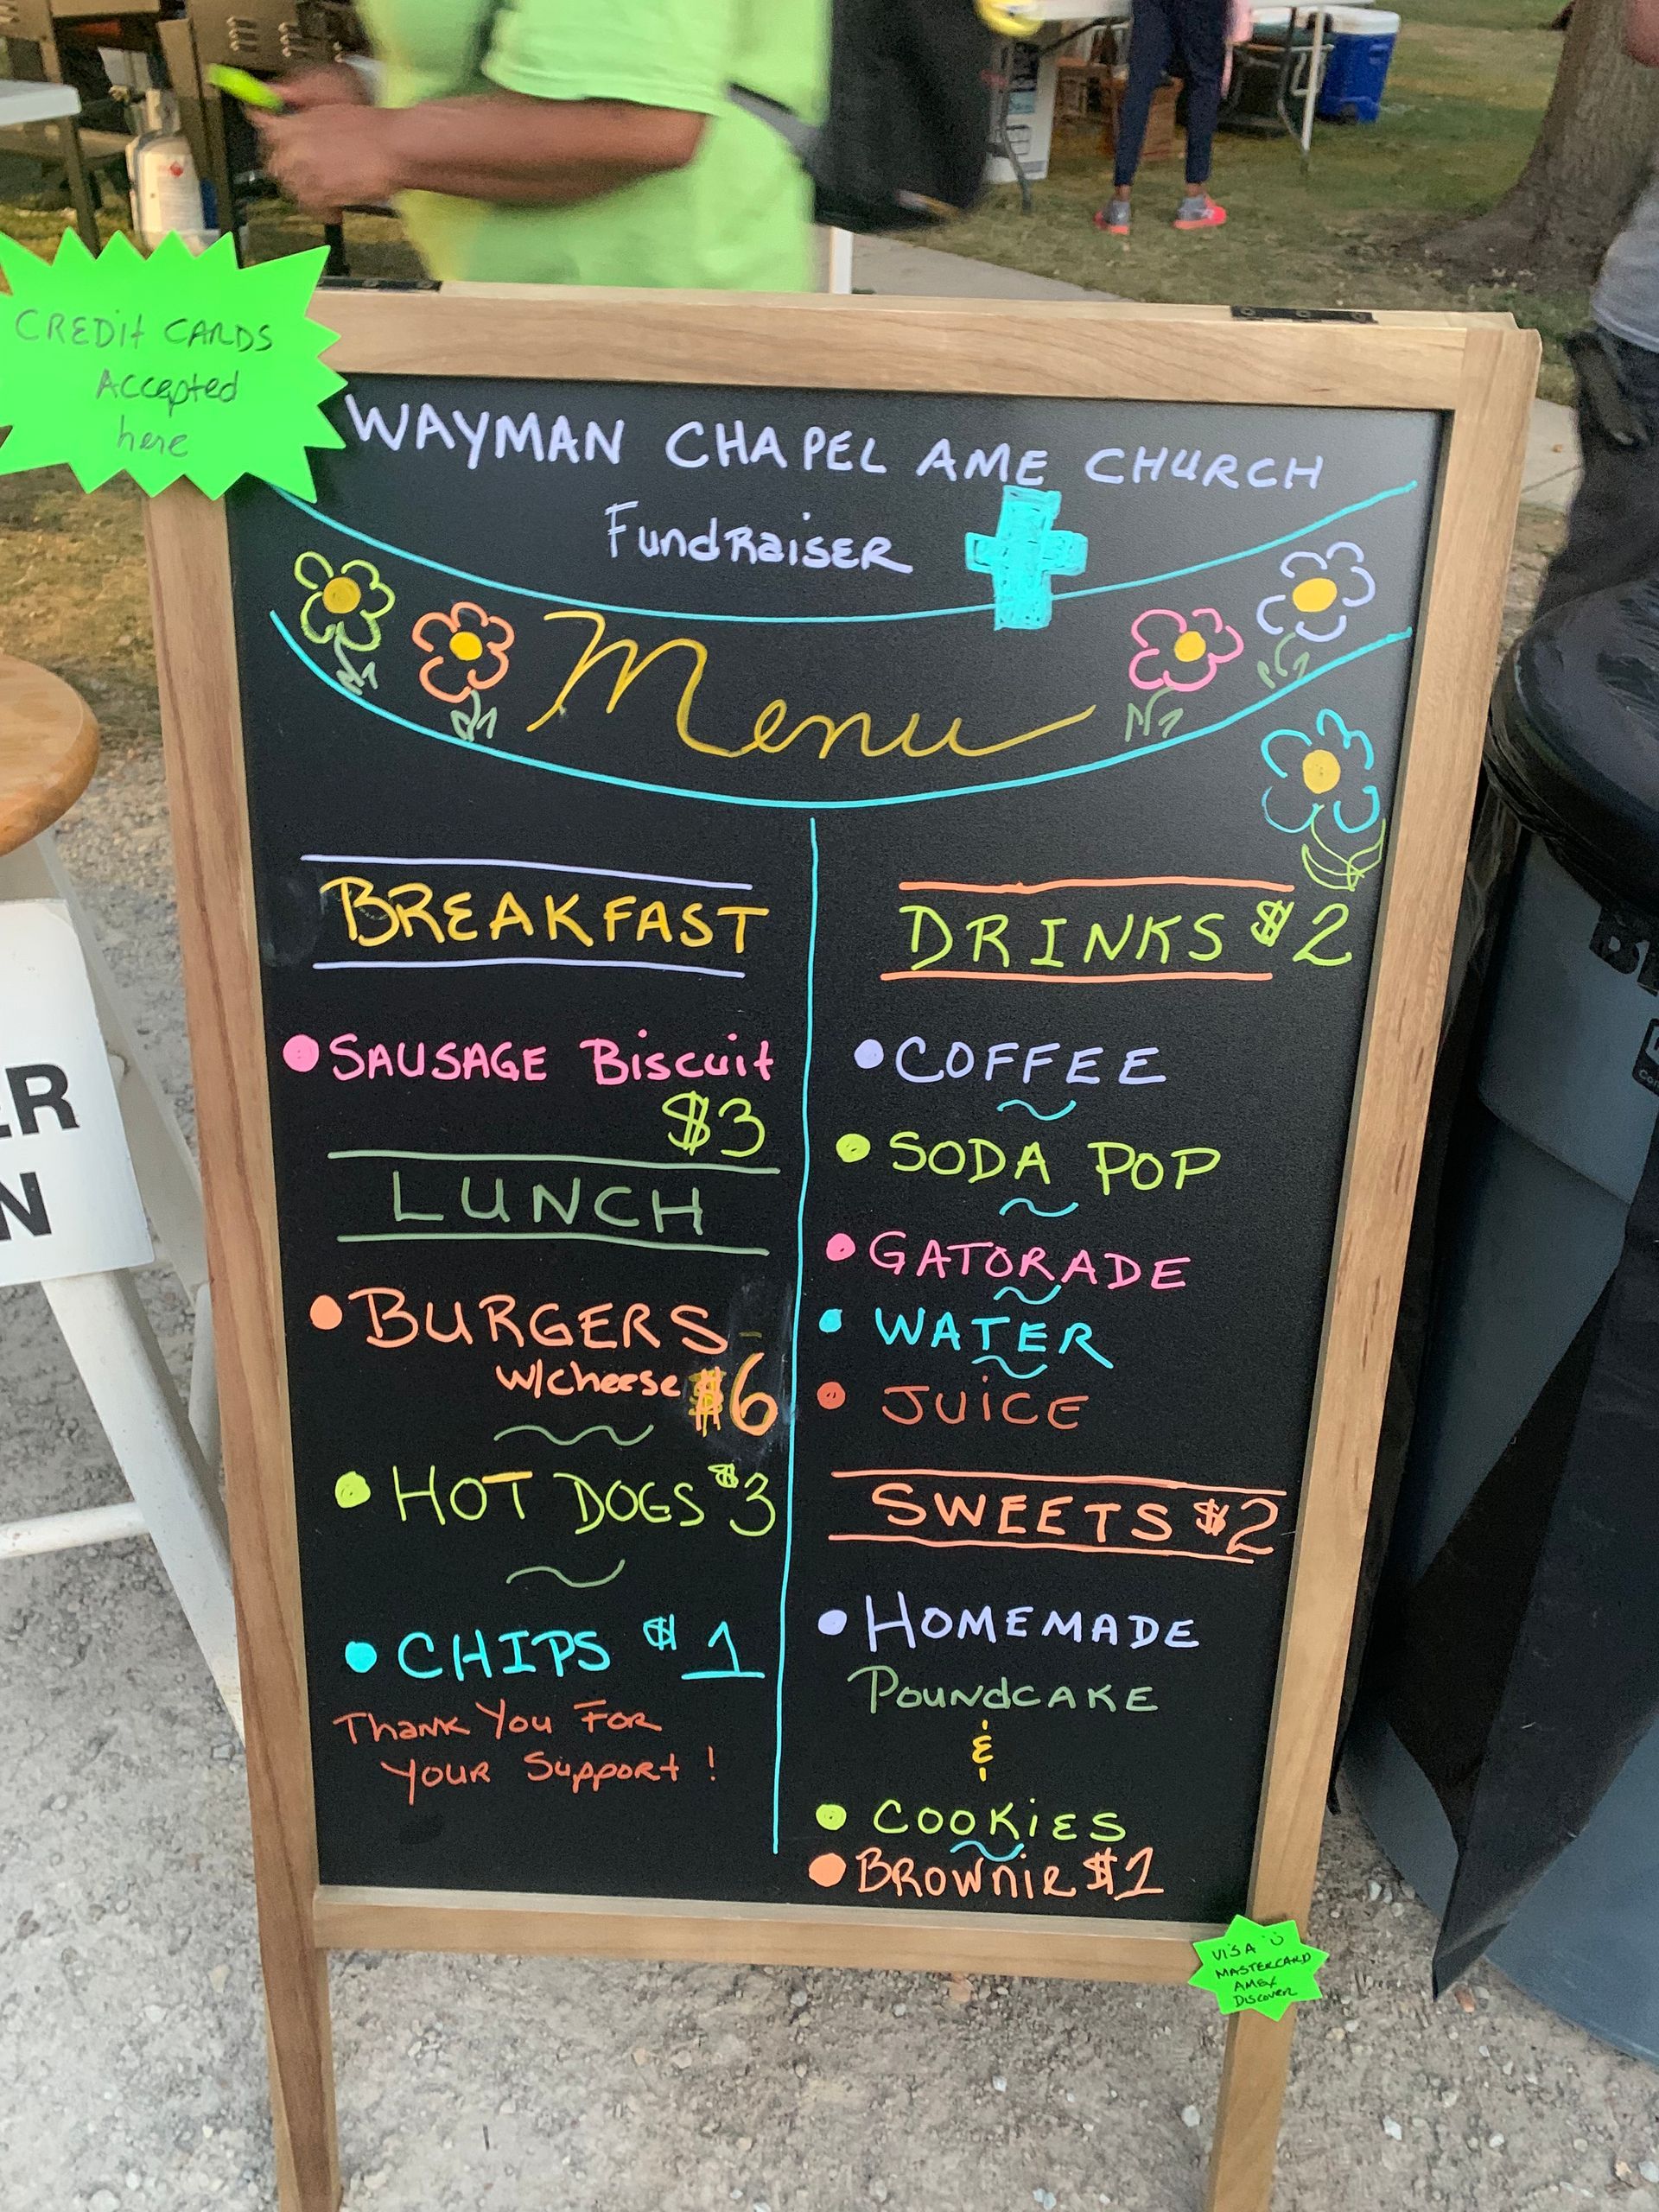 CREDit CARDS
Accepted
here
WAYMAN CHAPEL AME CHURCH
FundRaiSER
Menu
BREAKFAST
SAUSAGE Biscuit
$3
LUNCH
BURGERS
W/Cheese $6
HOT DOGS $3
CHIPS $1
Thank You For
Your Support!
DRINKS $2
COFFEE
SODA POP
GATORADE
WATER
JUiCE
SWEETS $2
HOMEMADE
PoundCAKE
&
COOKiES
BROWNiE $1
ViSA
MASTERCARD
AMEX
DiScover
ER
N